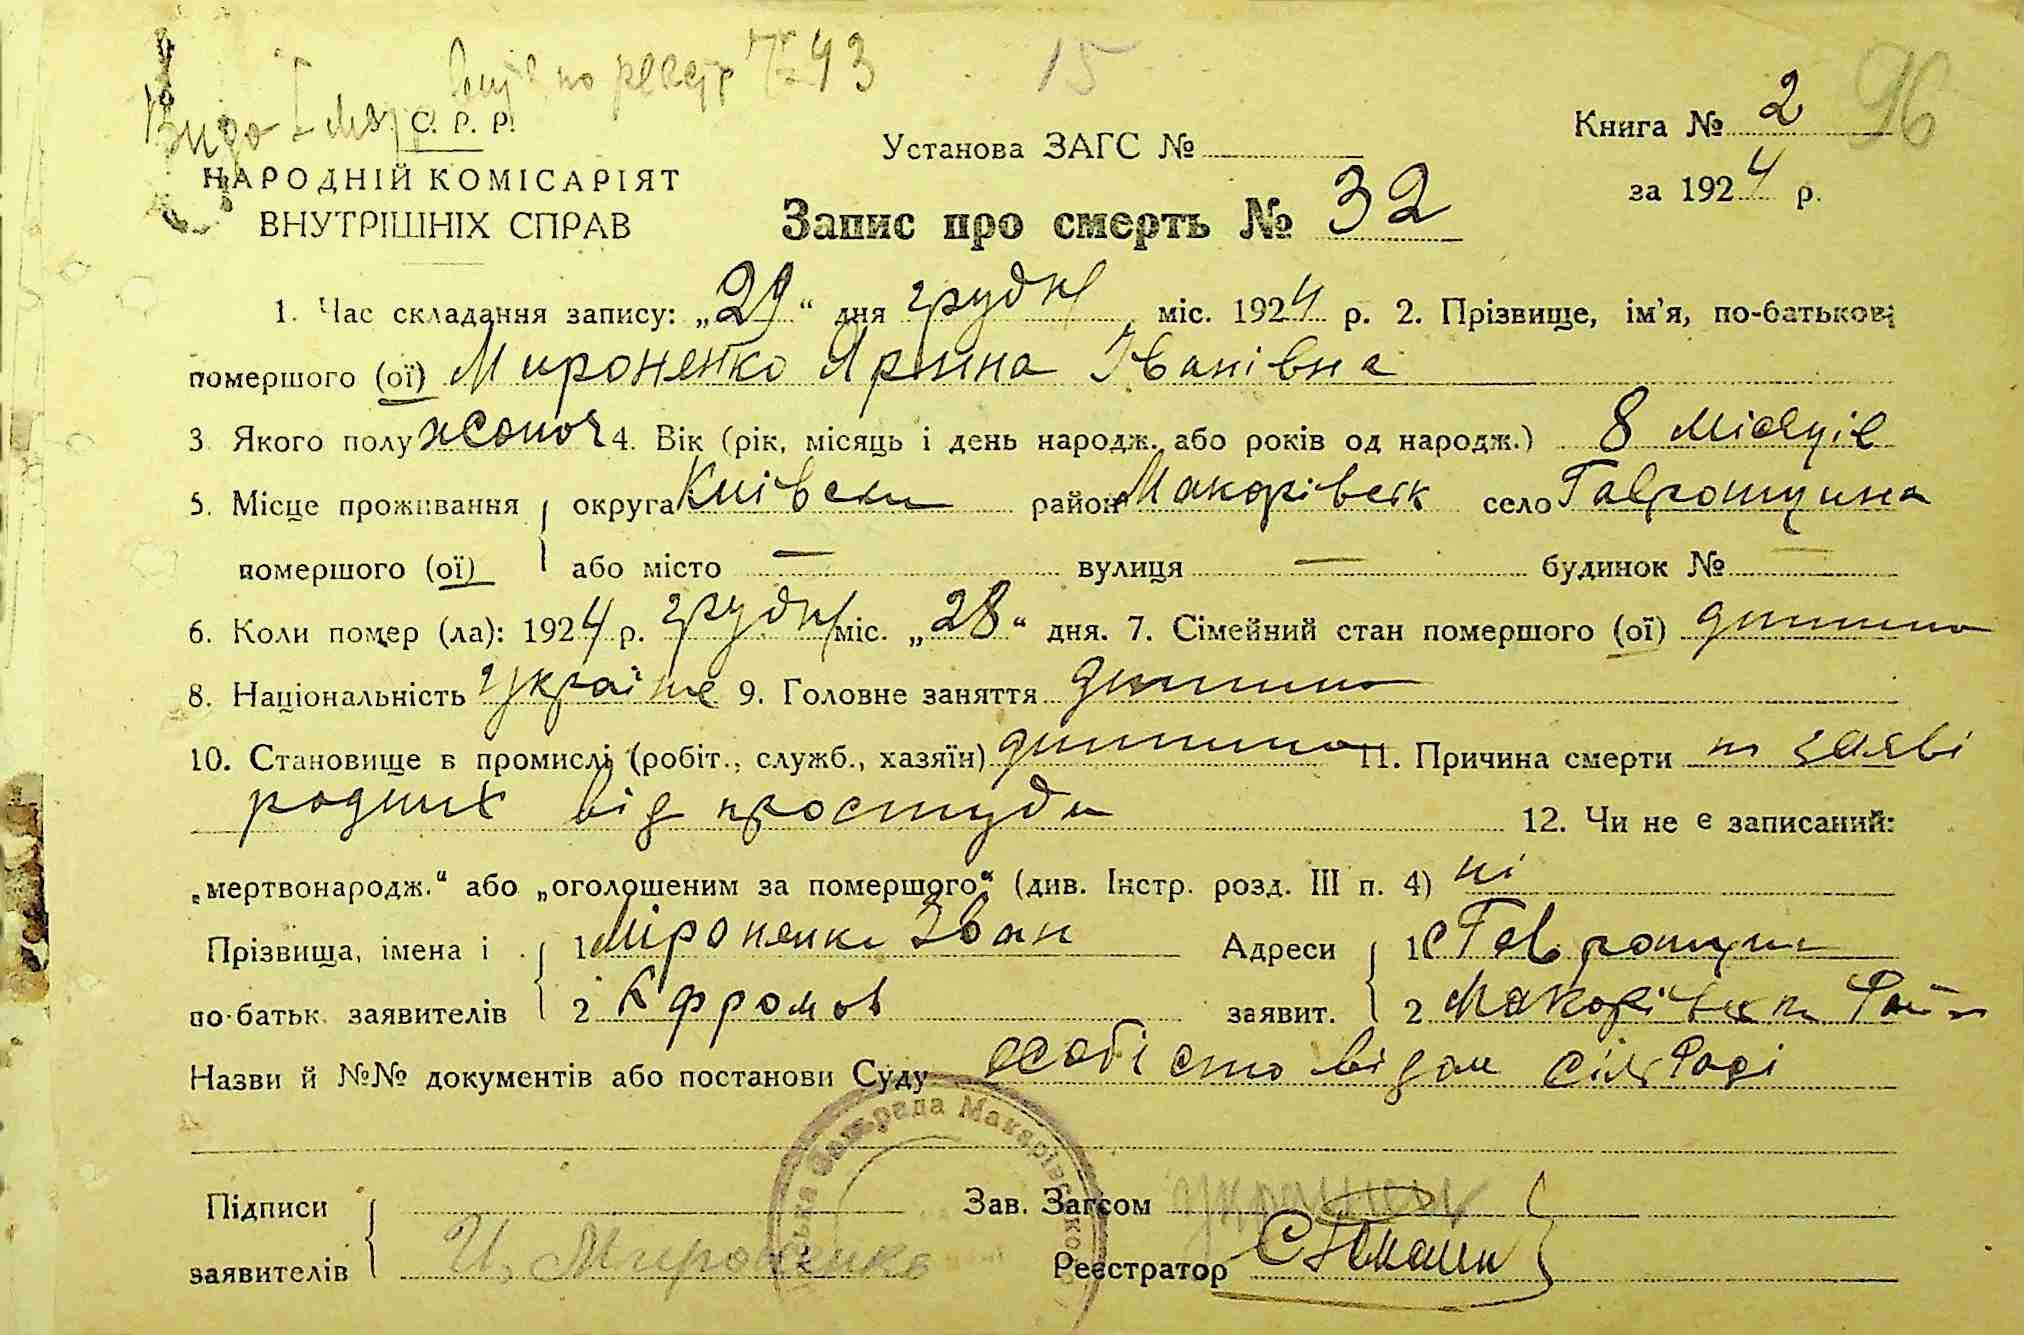 по реєстр № 43 15
Книга № 2 96
С. Р. Р.
Установа ЗАГС №
НАРОДНІЙ КОМІСАРІЯТ за 1924 р.
ВНУТРІШНІХ СПРАВ Запис про смерть № 32
1. Час складання запису: „29“ дня грудня міс. 1924 р. 2. Прізвище, ім'я, по-батькові
помершого (ої) Мироненко Ярина Іванівна
3. Якого полу жоноч 4. Вік (рік, місяць і день народж. або років од народж.) 8 місяців
5. Місце проживання округа Київськ район Макорівськ село Гаврошщина
помершого (ої) або місто — вулиця — будинок № —
6. Коли помер (ла): 1924 р. грудня міс. „28“ дня. 7. Сімейний стан помершого (ої) дитина
8. Національність україне 9. Головне заняття дитина
10. Становище в промислі (робіт., служб., хазяїн) дитина 11. Причина смерти по заяві
родних від простуди 12. Чи не є записаний:
„мертвонародж.“ або „оголошеним за помершого“ (див. Інстр. розд. III п. 4) ні
Прізвища, імена і 1 Міроненко Іван Адреси 1 с Гаврошщина
по-батьк. заявителів 2 Єфромов заявит. 2 Макорівськ Рай
Назви й №№ документів або постанови Суду особісто відом сільРаді
Сільрада Макарівсько
Підписи Зав. Загсом
заявителів И. Мироненко Реєстратор